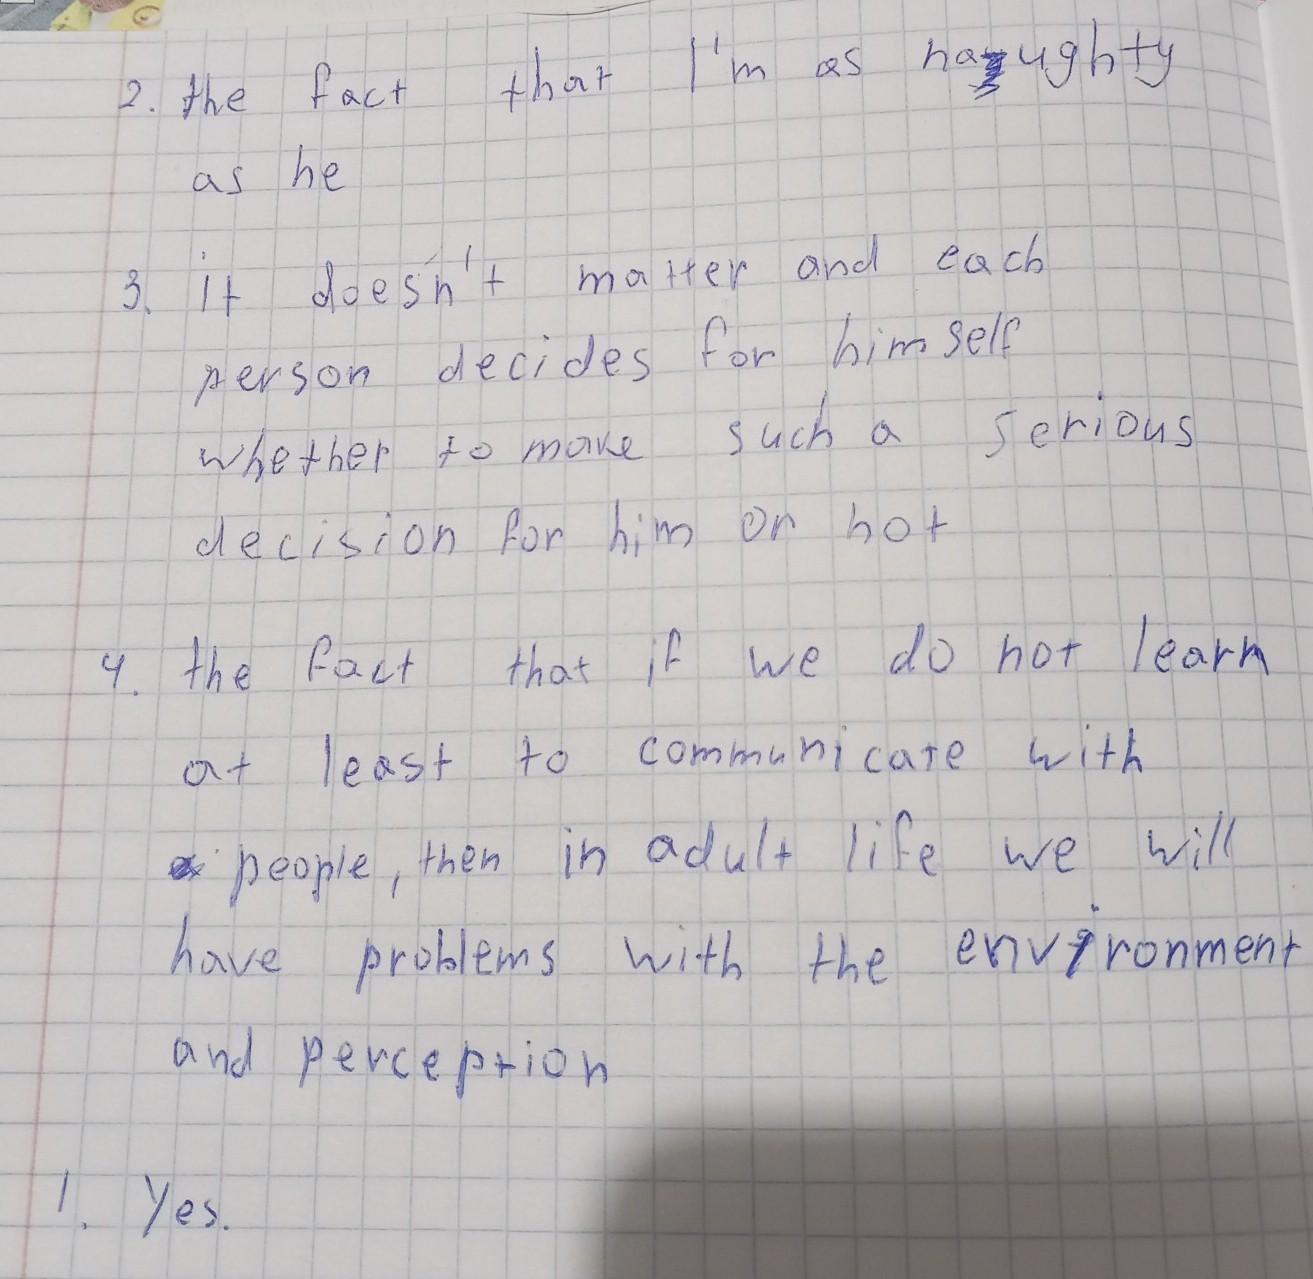 2. the fact that I'm as naughty
as he
3. it doesn't matter and each
person decides for himself
whether to make such a serious
decision for him or not
4. the fact that if we do not learn
at least to communicate with
people, then in adult life we will
have problems with the environment
and perception
1. Yes.